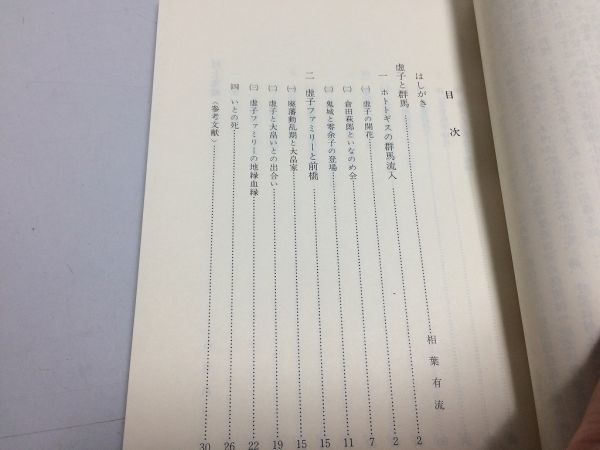 目次
はしがき……相葉有流 2
虚子と群馬……2
一 ホトトギスの群馬流入
㈠ 虚子の開花……7
㈡ 倉田萩郎といなのめ会……11
㈢ 鬼城と零余子の登場……15
二 虚子ファミリーと前橋
㈠ 廃藩動乱期と大畠家……15
㈡ 虚子と大畠いとの出合い……19
㈢ 虚子ファミリーの地縁血縁……22
四 いとの死……26
〈参考文献〉……30